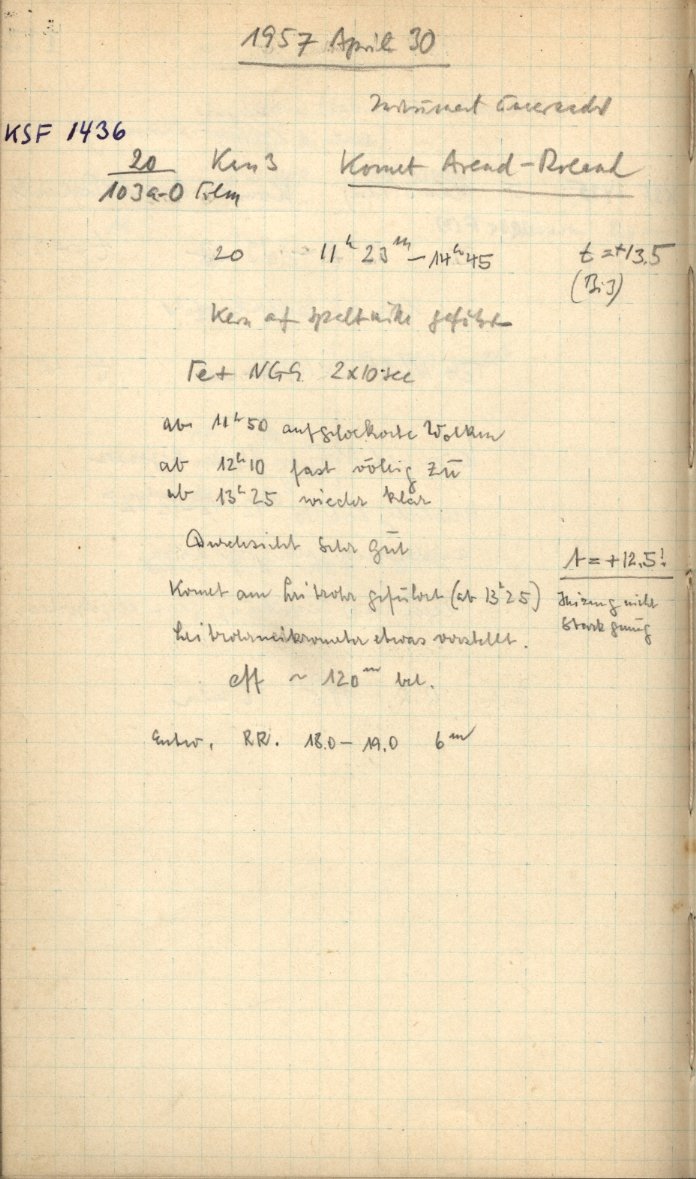 1957 April 30
Instrument
KSF 1436
20 Kam3 Komet Arend-Roland
103a-O Film
20 11ʰ23ᵐ – 14ʰ45 t=+13.5
(Bi3)
Kern auf Spaltmitte geführt
Fe+ NGG 2x10sec
ab 11ʰ50 aufgelockerte Wolken
ab 12ʰ10 fast völlig zu
ab 13ʰ25 wieder klar
Durchsicht sehr gut
t=+12.5!
Komet am Leitrohr geführt (ab 13ʰ25)
Heizung nicht
stark genug
Leitrohrmikrometer etwas verstellt.
eff ~ 120ᵐ bel.
Entw. RR. 18.0–19.0 6ᵐ